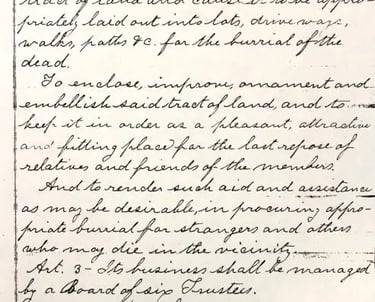 tract of land and cause it to be appro-
priately laid out into lots, drive ways,
walks, paths &c. for the burrial of the
dead.
To enclose, improve, ornament and
embellish said tract of land, and to
keep it in order as a pleasant, attractive
and fitting place for the last repose of
relatives and friends of the members.
And to render such aid and assistance
as may be desirable, in procuring appro-
priate burrial for strangers and others
who may die in the vicinity.
Art. 3 - Its business shall be managed
by a Board of six Trustees.